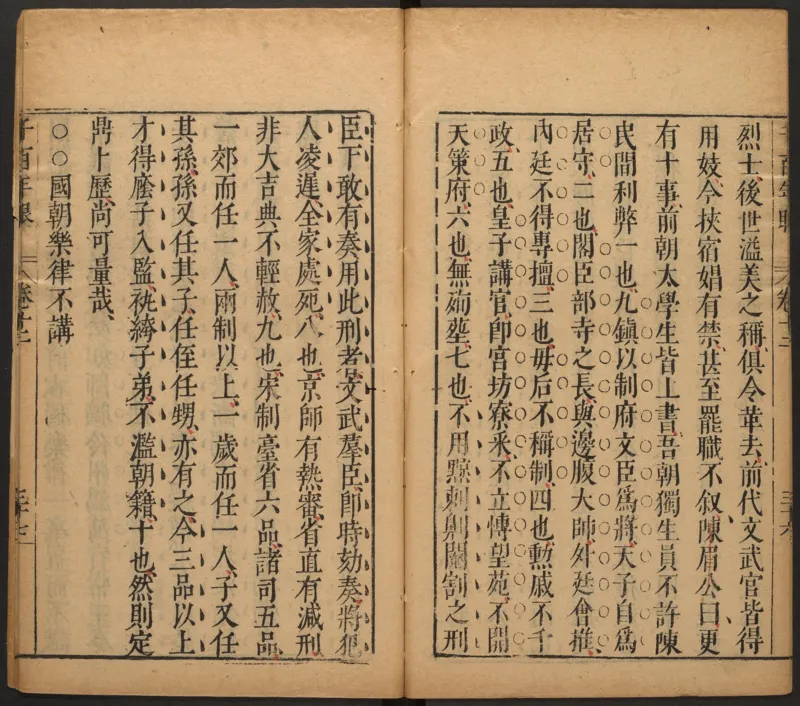 烈士、後世溢美之稱、俱令革去、前代文武官皆得
用妓、今挾宿娼有禁、甚至罷職不叙、陳眉公曰、更
有十事、前朝太學生皆上書、吾朝獨生員不許陳
民間利弊一也、九鎮以制府文臣爲將、天子自爲
居守、二也、閣臣部寺之長、與邊腹大帥、外廷會推、
內廷不得專擅、三也、毋后不稱制、四也、勲戚不干
政、五也、皇子講官、卽宮坊寮寀、不立博望苑、不開
天策府、六也、無茹葷、七也、不用黥刺劓閹割之刑
臣下敢有奏用此刑者、文武羣臣、卽時劾奏、將犯
人凌遲、全家處死、八也、京師有熱審、省直有減刑
非大吉典不輕赦、九也、宋制臺省六品、諸司五品、
一郊而任一人、兩制以上、一歲而任一人、子又任
其孫、孫又任其子、任侄任甥、亦有之、今三品以上
才得廕子入監、紈綺子弟、不濫朝籍、十也、然則定
鼎卜歷、尚可量哉、
○○國朝樂律不講
千百年眼 卷十二